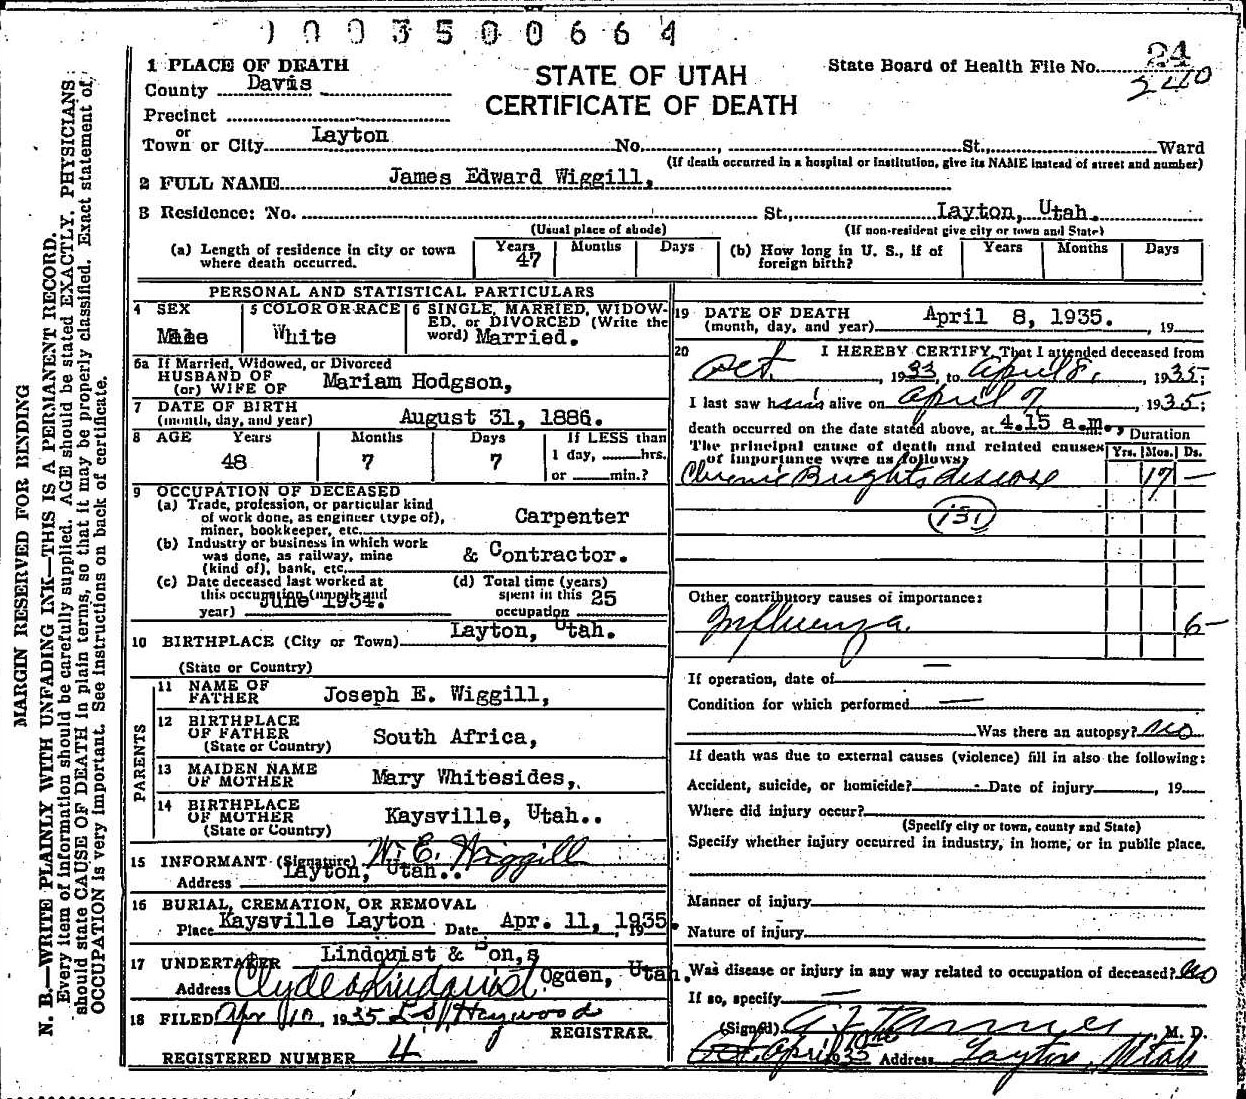 1003500664
1 PLACE OF DEATH
County Davis
Precinct
or
Town or City Layton No. , St., Ward
(If death occurred in a hospital or institution, give its NAME instead of street and number)
STATE OF UTAH
CERTIFICATE OF DEATH
State Board of Health File No. 24
240
2 FULL NAME James Edward Wiggill,
3 Residence: No. St., Layton, Utah.
(Usual place of abode) (If non-resident give city or town and State)
(a) Length of residence in city or town where death occurred. Years 47 Months Days
(b) How long in U. S., if of foreign birth? Years Months Days
PERSONAL AND STATISTICAL PARTICULARS
4 SEX Male
5 COLOR OR RACE White
6 SINGLE, MARRIED, WIDOW-
ED, or DIVORCED (Write the
word) Married.
6a If Married, Widowed, or Divorced
HUSBAND OF
(or) WIFE OF Mariam Hodgson,
7 DATE OF BIRTH
(month, day, and year) August 31, 1886.
8 AGE Years Months Days If LESS than
48 7 7 1 day, hrs.
or min.?
9 OCCUPATION OF DECEASED
(a) Trade, profession, or particular kind
of work done, as engineer (type of),
miner, bookkeeper, etc. Carpenter
(b) Industry or business in which work
was done, as railway, mine
(kind of), bank, etc. & Contractor.
(c) Date deceased last worked at
this occupation (month and
year) June 1934.
(d) Total time (years)
spent in this 25
occupation
10 BIRTHPLACE (City or Town) Layton, Utah.
(State or Country)
PARENTS
11 NAME OF
FATHER Joseph E. Wiggill,
12 BIRTHPLACE
OF FATHER
(State or Country) South Africa,
13 MAIDEN NAME
OF MOTHER Mary Whitesides,
14 BIRTHPLACE
OF MOTHER
(State or Country) Kaysville, Utah..
15 INFORMANT (Signature) W. E. Wiggill
Address Layton, Utah..
16 BURIAL, CREMATION, OR REMOVAL
Place Kaysville Layton Date Apr. 11, 1935.
17 UNDERTAKER Lindquist & Son,s
Address Clyde Lindquist Ogden, Utah.
18 FILED Apr 10, 1935 L S Heywood
REGISTRAR.
REGISTERED NUMBER 4
19 DATE OF DEATH
(month, day, and year) April 8, 1935. , 19
20 I HEREBY CERTIFY, That I attended deceased from
Oct. , 1933, to April 8, , 1935;
I last saw him alive on April 7, , 1935;
death occurred on the date stated above, at 4.15 a.m.,
The principal cause of death and related causes
of importance were as follows:
Duration
Yrs. Mos. Ds.
Chronic Brights disease 17 —
131
Other contributory causes of importance:
Influenza. 6 —
If operation, date of —
Condition for which performed —
Was there an autopsy? No
If death was due to external causes (violence) fill in also the following:
Accident, suicide, or homicide? Date of injury , 19
Where did injury occur?
(Specify city or town, county and State)
Specify whether injury occurred in industry, in home, or in public place.
Manner of injury
Nature of injury
Was disease or injury in any way related to occupation of deceased? No
If so, specify —
(Signed) M. D.
April 10th 1935 Address Layton, Utah
MARGIN RESERVED FOR BINDING
N. B.—WRITE PLAINLY WITH UNFADING INK—THIS IS A PERMANENT RECORD.
Every item of information should be carefully supplied. AGE should be stated EXACTLY. PHYSICIANS
should state CAUSE OF DEATH in plain terms, so that it may be properly classified. Exact statement of
OCCUPATION is very important. See instructions on back of certificate.